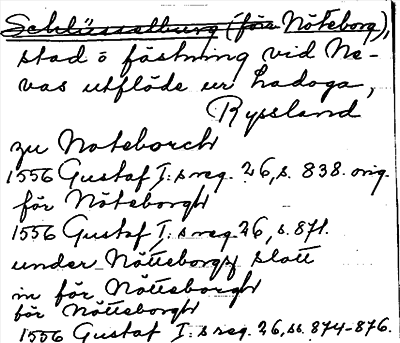 Schlüsselburg (före Nöteborg),
stad o fästning vid Ne-
vas utflöde ur Ladoga,
Ryssland
zu Noteborch
1556 Gustaf I:s reg. 26, s. 838. orig.
för Nöteborgh
1556 Gustaf I:s reg. 26, s. 871.
under Nötteborgs slott
in för Nötteborgh
för Nötteborgh
1556 Gustaf I:s reg. 26, ss. 874-876.